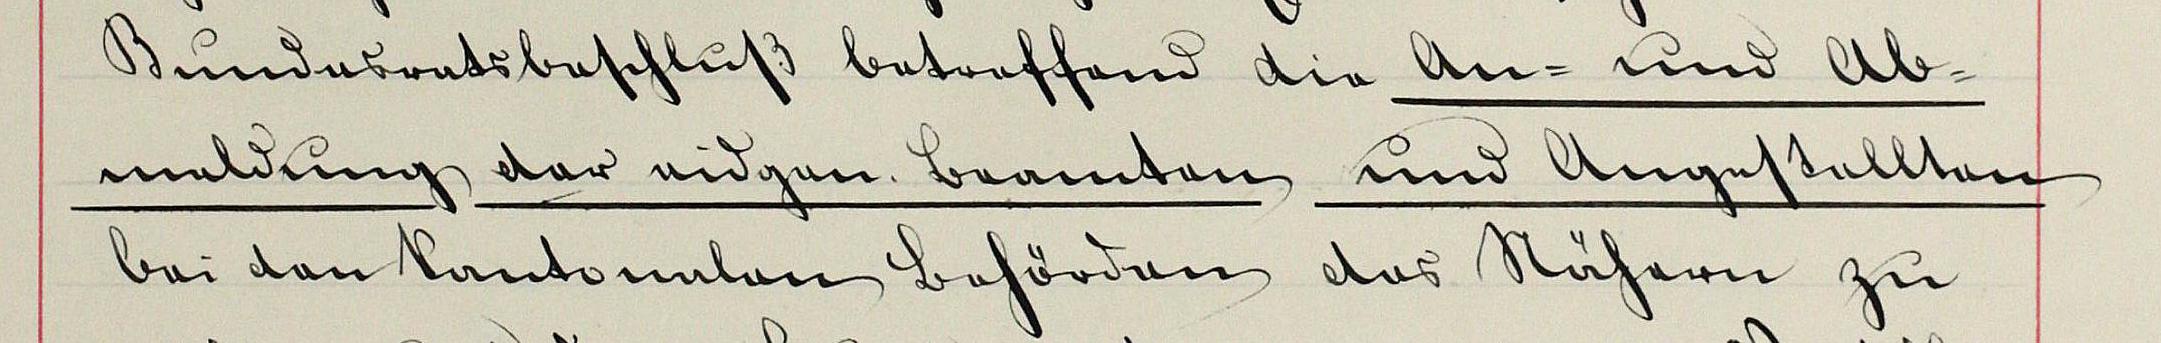 Bundesratsbeschluß betreffend die An- und Ab-
meldung der eidgen. Beamten und Angestellten
bei den kantonalen Behörden des Nähern zu